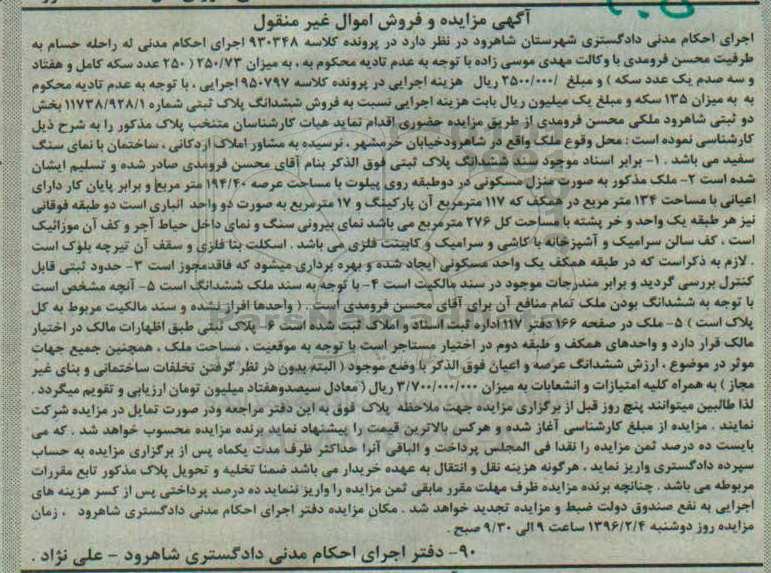 آگهی مزایده و فروش اموال غیر منقول
اجرای احکام مدنی دادگستری شهرستان شاهرود در نظر دارد در پرونده کلاسه ۹۳۰۳۴۸ اجرای احکام مدنی له راحله حسام به
طرفیت محسن فرومدی با وکالت مهدی موسی زاده با توجه به عدم تادیه محکوم به ، به میزان ۲۵۰/۷۳ ( ۲۵۰ عدد سکه کامل و هفتاد
و سه صدم یک عدد سکه ) و مبلغ ۲۵۰۰/۰۰۰/ ریال هزینه اجرایی در پرونده کلاسه ۹۵۰۷۹۷ اجرایی ، با توجه به عدم تادیه محکوم
به به میزان ۱۳۵ سکه و مبلغ یک میلیون ریال بابت هزینه اجرایی نسبت به فروش ششدانگ پلاک ثبتی شماره ۱۱۷۳۸/۹۲۸/۱ بخش
دو ثبتی شاهرود ملکی محسن فرومدی از طریق مزایده حضوری اقدام نماید هیات کارشناسان منتخب پلاک مذکور را به شرح ذیل
کارشناسی نموده است : محل وقوع ملک واقع در شاهرودخیابان خرمشهر ، نرسیده به مشاور املاک اردکانی ، ساختمان با نمای سنگ
سفید می باشد . ۱- برابر اسناد موجود سند ششدانگ پلاک ثبتی فوق الذکر بنام آقای محسن فرومدی صادر شده و تسلیم ایشان
شده است ۲- ملک مذکور به صورت منزل مسکونی در دوطبقه روی پیلوت با مساحت عرصه ۱۹۴/۴۰ متر مربع و برابر پایان کار دارای
اعیانی با مساحت ۱۳۴ متر مربع در همکف که ۱۱۷ مترمربع آن پارکینگ و ۱۷ مترمربع به صورت دو واحد انباری است دو طبقه فوقانی
نیز هر طبقه یک واحد و خر پشته با مساحت کل ۲۷۶ مترمربع می باشد نمای بیرونی سنگ و نمای داخل حیاط آجر و کف آن موزائیک
است ، کف سالن سرامیک و آشپزخانه با کاشی و سرامیک و کابینت فلزی می باشد . اسکلت بنا فلزی و سقف آن تیرچه بلوک است
. لازم به ذکراست که در طبقه همکف یک واحد مسکونی ایجاد شده و بهره برداری میشود که فاقدمجوز است ۳- حدود ثبتی قابل
کنترل بررسی گردید و برابر مندرجات موجود در سند مالکیت است ۴- با توجه به سند ملک ششدانگ است ۵- آنچه مشخص است
با توجه به ششدانگ بودن ملک تمام منافع آن برای آقای محسن فرومدی است . ( واحدها افراز نشده و سند مالکیت مربوط به کل
پلاک است ) ۵- ملک در صفحه ۱۶۶ دفتر ۱۱۷ اداره ثبت اسناد و املاک ثبت شده است ۶- پلاک ثبتی طبق اظهارات مالک در اختیار
مالک قرار دارد و واحدهای همکف و طبقه دوم در اختیار مستاجر است با توجه به موقعیت ، مساحت ملک ، همچنین جمیع جهات
موثر در موضوع ، ارزش ششدانگ عرصه و اعیان فوق الذکر با وضع موجود ( البته بدون در نظر گرفتن تخلفات ساختمانی و بنای غیر
مجاز ) به همراه کلیه امتیازات و انشعابات به میزان ۳/۷۰۰/۰۰۰/۰۰۰ ریال ( معادل سیصدوهفتاد میلیون تومان ارزیابی و تقویم میگردد .
لذا طالبین میتوانند پنج روز قبل از برگزاری مزایده جهت ملاحظه پلاک فوق به این دفتر مراجعه ودر صورت تمایل در مزایده شرکت
نمایند . مزایده از مبلغ کارشناسی آغاز شده و هرکس بالاترین قیمت را پیشنهاد نماید برنده مزایده محسوب خواهد شد . که می
بایست ده درصد ثمن مزایده را نقدا فی المجلس پرداخت و الباقی آنرا حداکثر ظرف مدت یکماه پس از برگزاری مزایده به حساب
سپرده دادگستری واریز نماید . هرگونه هزینه نقل و انتقال به عهده خریدار می باشد ضمنا تخلیه و تحویل پلاک مذکور تابع مقررات
مربوطه می باشد . چنانچه برنده مزایده ظرف مهلت مقرر مابقی ثمن مزایده را واریز ننماید ده درصد پرداختی پس از کسر هزینه های
اجرایی به نفع صندوق دولت ضبط و مزایده تجدید خواهد شد . مکان مزایده دفتر اجرای احکام مدنی دادگستری شاهرود ، زمان
مزایده روز دوشنبه ۱۳۹۶/۲/۴ ساعت ۹ الی ۹/۳۰ صبح .
۹۰- دفتر اجرای احکام مدنی دادگستری شاهرود - علی نژاد .